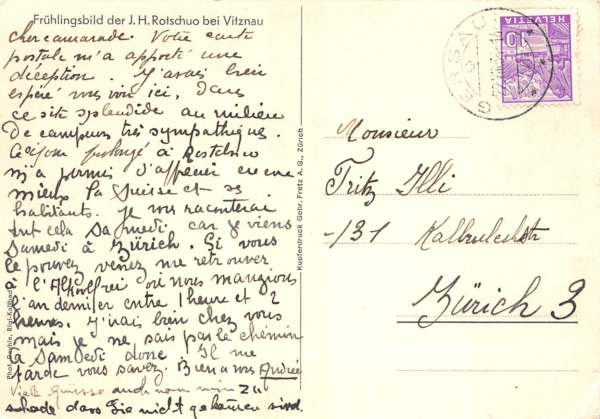 Frühlingsbild der J. H. Rotschuo bei Vitznau
cher camarade. Votre carte
postale m'a apporté une
déception. J'avais bien
espéré vous voir ici, dans
ce site splendide au milieu
de campeurs très sympathiques.
Ce séjour prolongé à Rotschuo
m'a permis d'apprécier encore
mieux la Suisse et ses
habitants. Je vous raconterai
tout cela Samedi car je viens
Samedi à Zürich. Si vous
le pouvez venez me retrouver
à l'Alkolfrei où nous mangions
l'an dernier entre 1 heure et 2
heures. J'irais bien chez vous
mais je ne sais pas le chemin
à Samedi donc Il me
tarde vous savez. Bien à vous Andrée
Viele Grüsse auch von mir
schade dass Sie nicht gekommen sind.
Phot.
Kupferdruck Gebr. Fretz A. G., Zürich
GERSAU
HELVETIA
10
Monsieur
Fritz Illi
131
Zürich 3